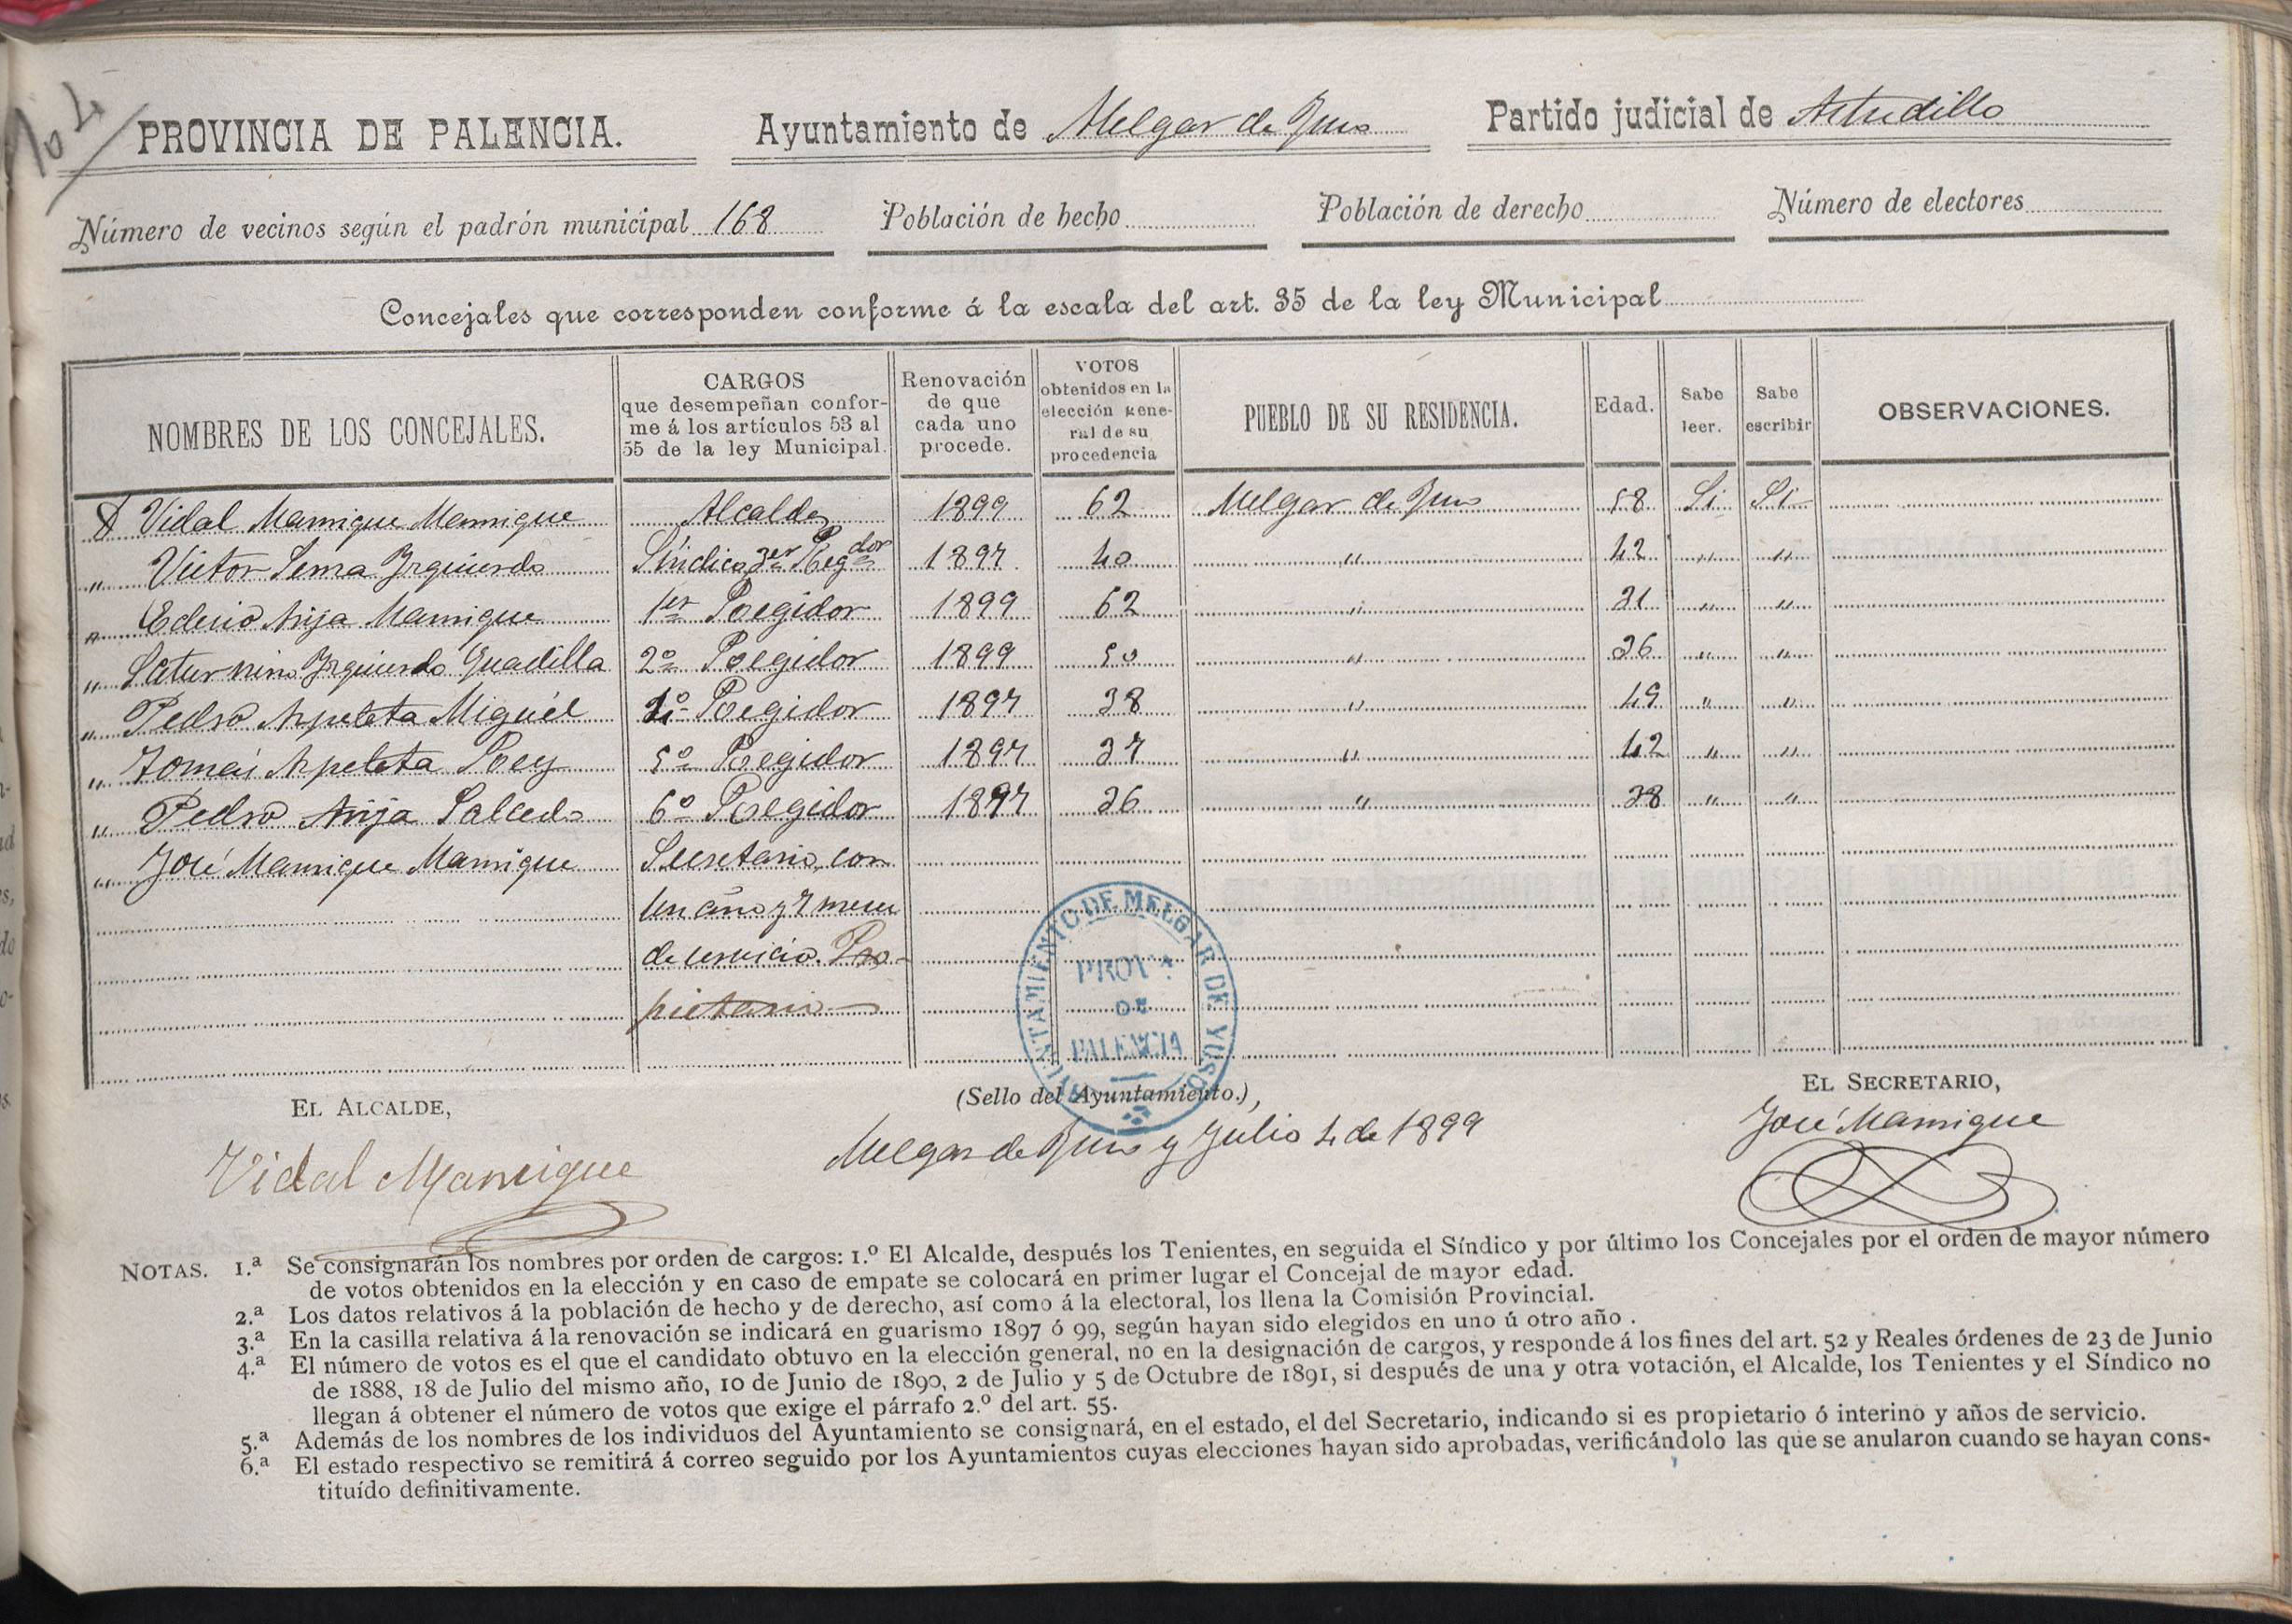 104
PROVINCIA DE PALENCIA. Ayuntamiento de Melgar de Yuso Partido judicial de Astudillo
Número de vecinos según el padrón municipal 168 Población de hecho Población de derecho Número de electores
Concejales que corresponden conforme á la escala del art. 35 de la ley Municipal
NOMBRES DE LOS CONCEJALES. CARGOS que desempeñan conforme á los artículos 53 al 55 de la ley Municipal. Renovación de que cada uno procede. VOTOS obtenidos en la elección general de su procedencia PUEBLO DE SU RESIDENCIA. Edad. Sabe leer. Sabe escribir OBSERVACIONES.
D Vidal Manrique Manrique Alcalde 1899 62 Melgar de Yuso 58 Si Si
" Victor Serna Yzquierdo Síndico 3er Regdor 1897 40 " 42 " "
" Manrique 1er Regidor 1899 62 " 31 " "
" Saturnino Yzquierdo Guadilla 2º Regidor 1899 50 " 36 " "
" Pedro Arpeleta Miguél 4º Regidor 1897 38 " 49 " "
" Tomás Arpeleta Rey 5º Regidor 1897 37 " 42 " "
" Pedro Arija Salcedo 6º Regidor 1897 36 " 38 " "
" José Manrique Manrique Secretario, con
un año y 7 meses
de servicio. Pro-
pietario
AYUNTAMIENTO DE MELGAR DE YUSO
PROVª
DE
PALENCIA
EL ALCALDE, (Sello del Ayuntamiento.), EL SECRETARIO,
Vidal Manrique Melgar de Yuso y Julio 4 de 1899 José Manrique
NOTAS. 1.ª Se consignarán los nombres por orden de cargos: 1.º El Alcalde, después los Tenientes, en seguida el Síndico y por último los Concejales por el orden de mayor número
de votos obtenidos en la elección y en caso de empate se colocará en primer lugar el Concejal de mayor edad.
2.ª Los datos relativos á la población de hecho y de derecho, así como á la electoral, los llena la Comisión Provincial.
3.ª En la casilla relativa á la renovación se indicará en guarismo 1897 ó 99, según hayan sido elegidos en uno ú otro año.
4.ª El número de votos es el que el candidato obtuvo en la elección general, no en la designación de cargos, y responde á los fines del art. 52 y Reales órdenes de 23 de Junio
de 1888, 18 de Julio del mismo año, 10 de Junio de 1890, 2 de Julio y 5 de Octubre de 1891, si después de una y otra votación, el Alcalde, los Tenientes y el Síndico no
llegan á obtener el número de votos que exige el párrafo 2.º del art. 55.
5.ª Además de los nombres de los individuos del Ayuntamiento se consignará, en el estado, el del Secretario, indicando si es propietario ó interino y años de servicio.
6.ª El estado respectivo se remitirá á correo seguido por los Ayuntamientos cuyas elecciones hayan sido aprobadas, verificándolo las que se anularon cuando se hayan cons-
tituído definitivamente.